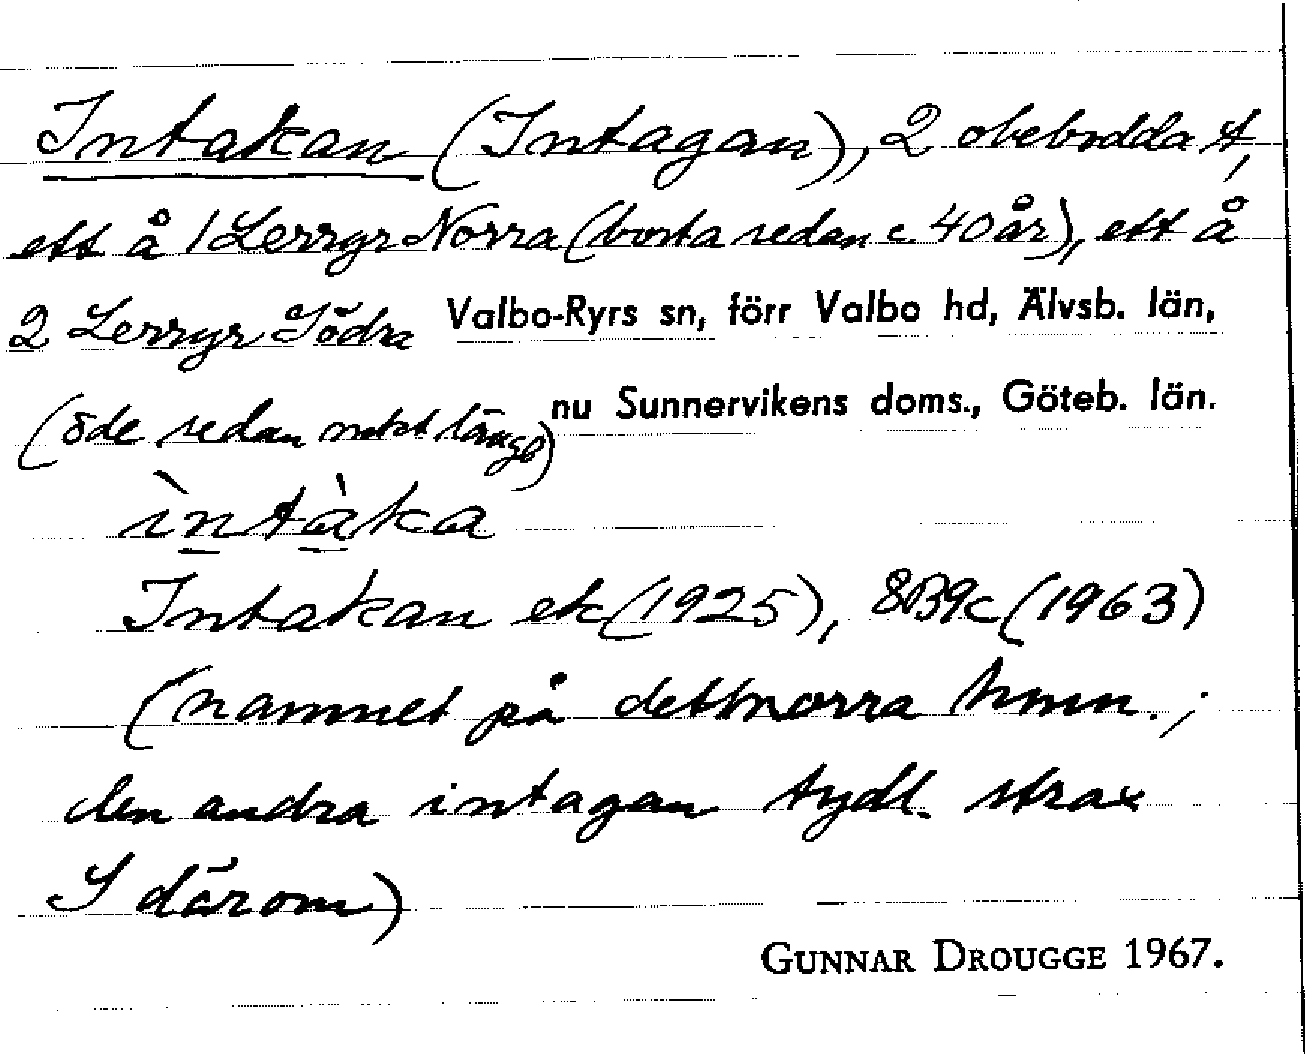 Intakan (Intagan), 2 obebodda t,
ett å 1 Lerryr Norra (borta sedan c. 40 år), ett å
2 Lerryr Södra Valbo-Ryrs sn, förr Valbo hd, Älvsb. län,
(öde sedan mkt länge) nu Sunnervikens doms., Göteb. län.
ìntàka
Intakan ek (1925), 8B9c (1963)
(namnet på det norra hmn.;
den andra intagan tydl. strax
S därom)
GUNNAR DROUGGE 1967.